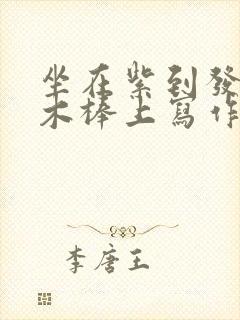 坐在紫到發
木棒上寫作
李唐王